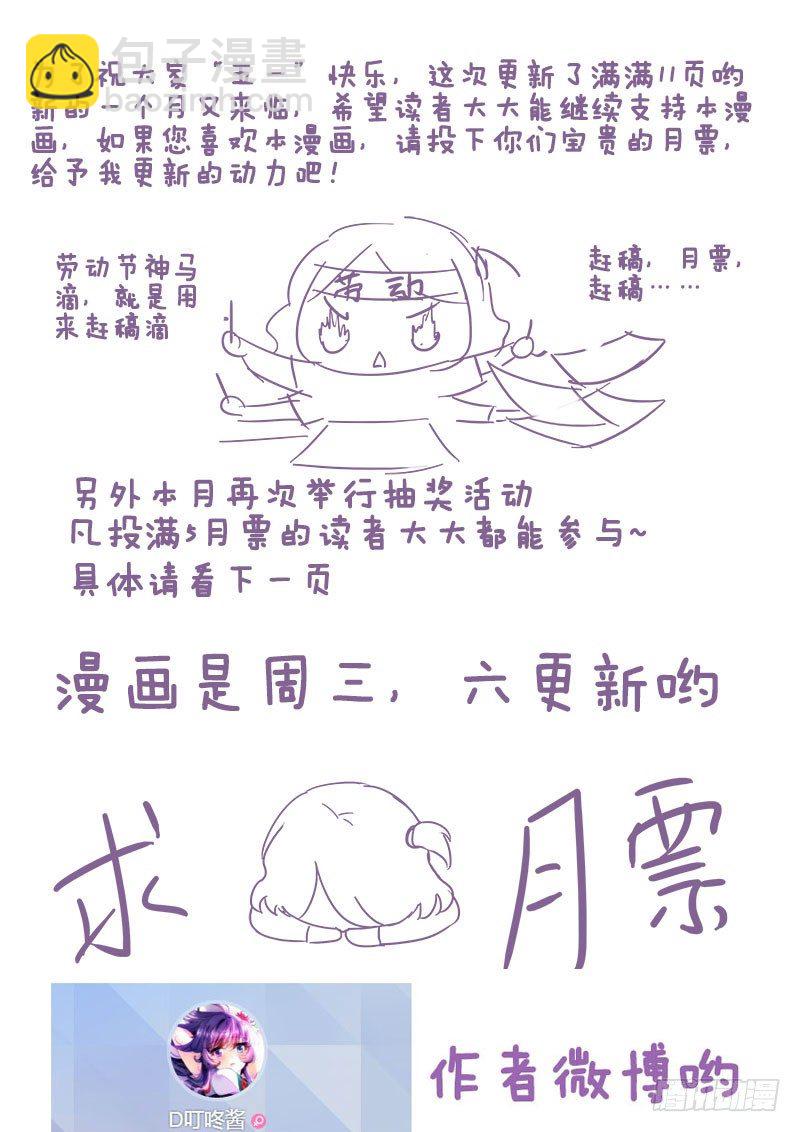 包子漫畫
baozimh.com
为了祝大家“五一”快乐，这次更新了满满11页哟
新的一个月又来临，希望读者大大能继续支持本漫
画，如果您喜欢本漫画，请投下你们宝贵的月票，
给予我更新的动力吧！
劳动节神马
滴，就是用
来赶稿滴
劳动
赶稿，月票，
赶稿……
另外本月再次举行抽奖活动
凡投满5月票的读者大大都能参与~
具体请看下一页
漫画是周三，六更新哟
求月票
D叮咚酱
作者微博哟